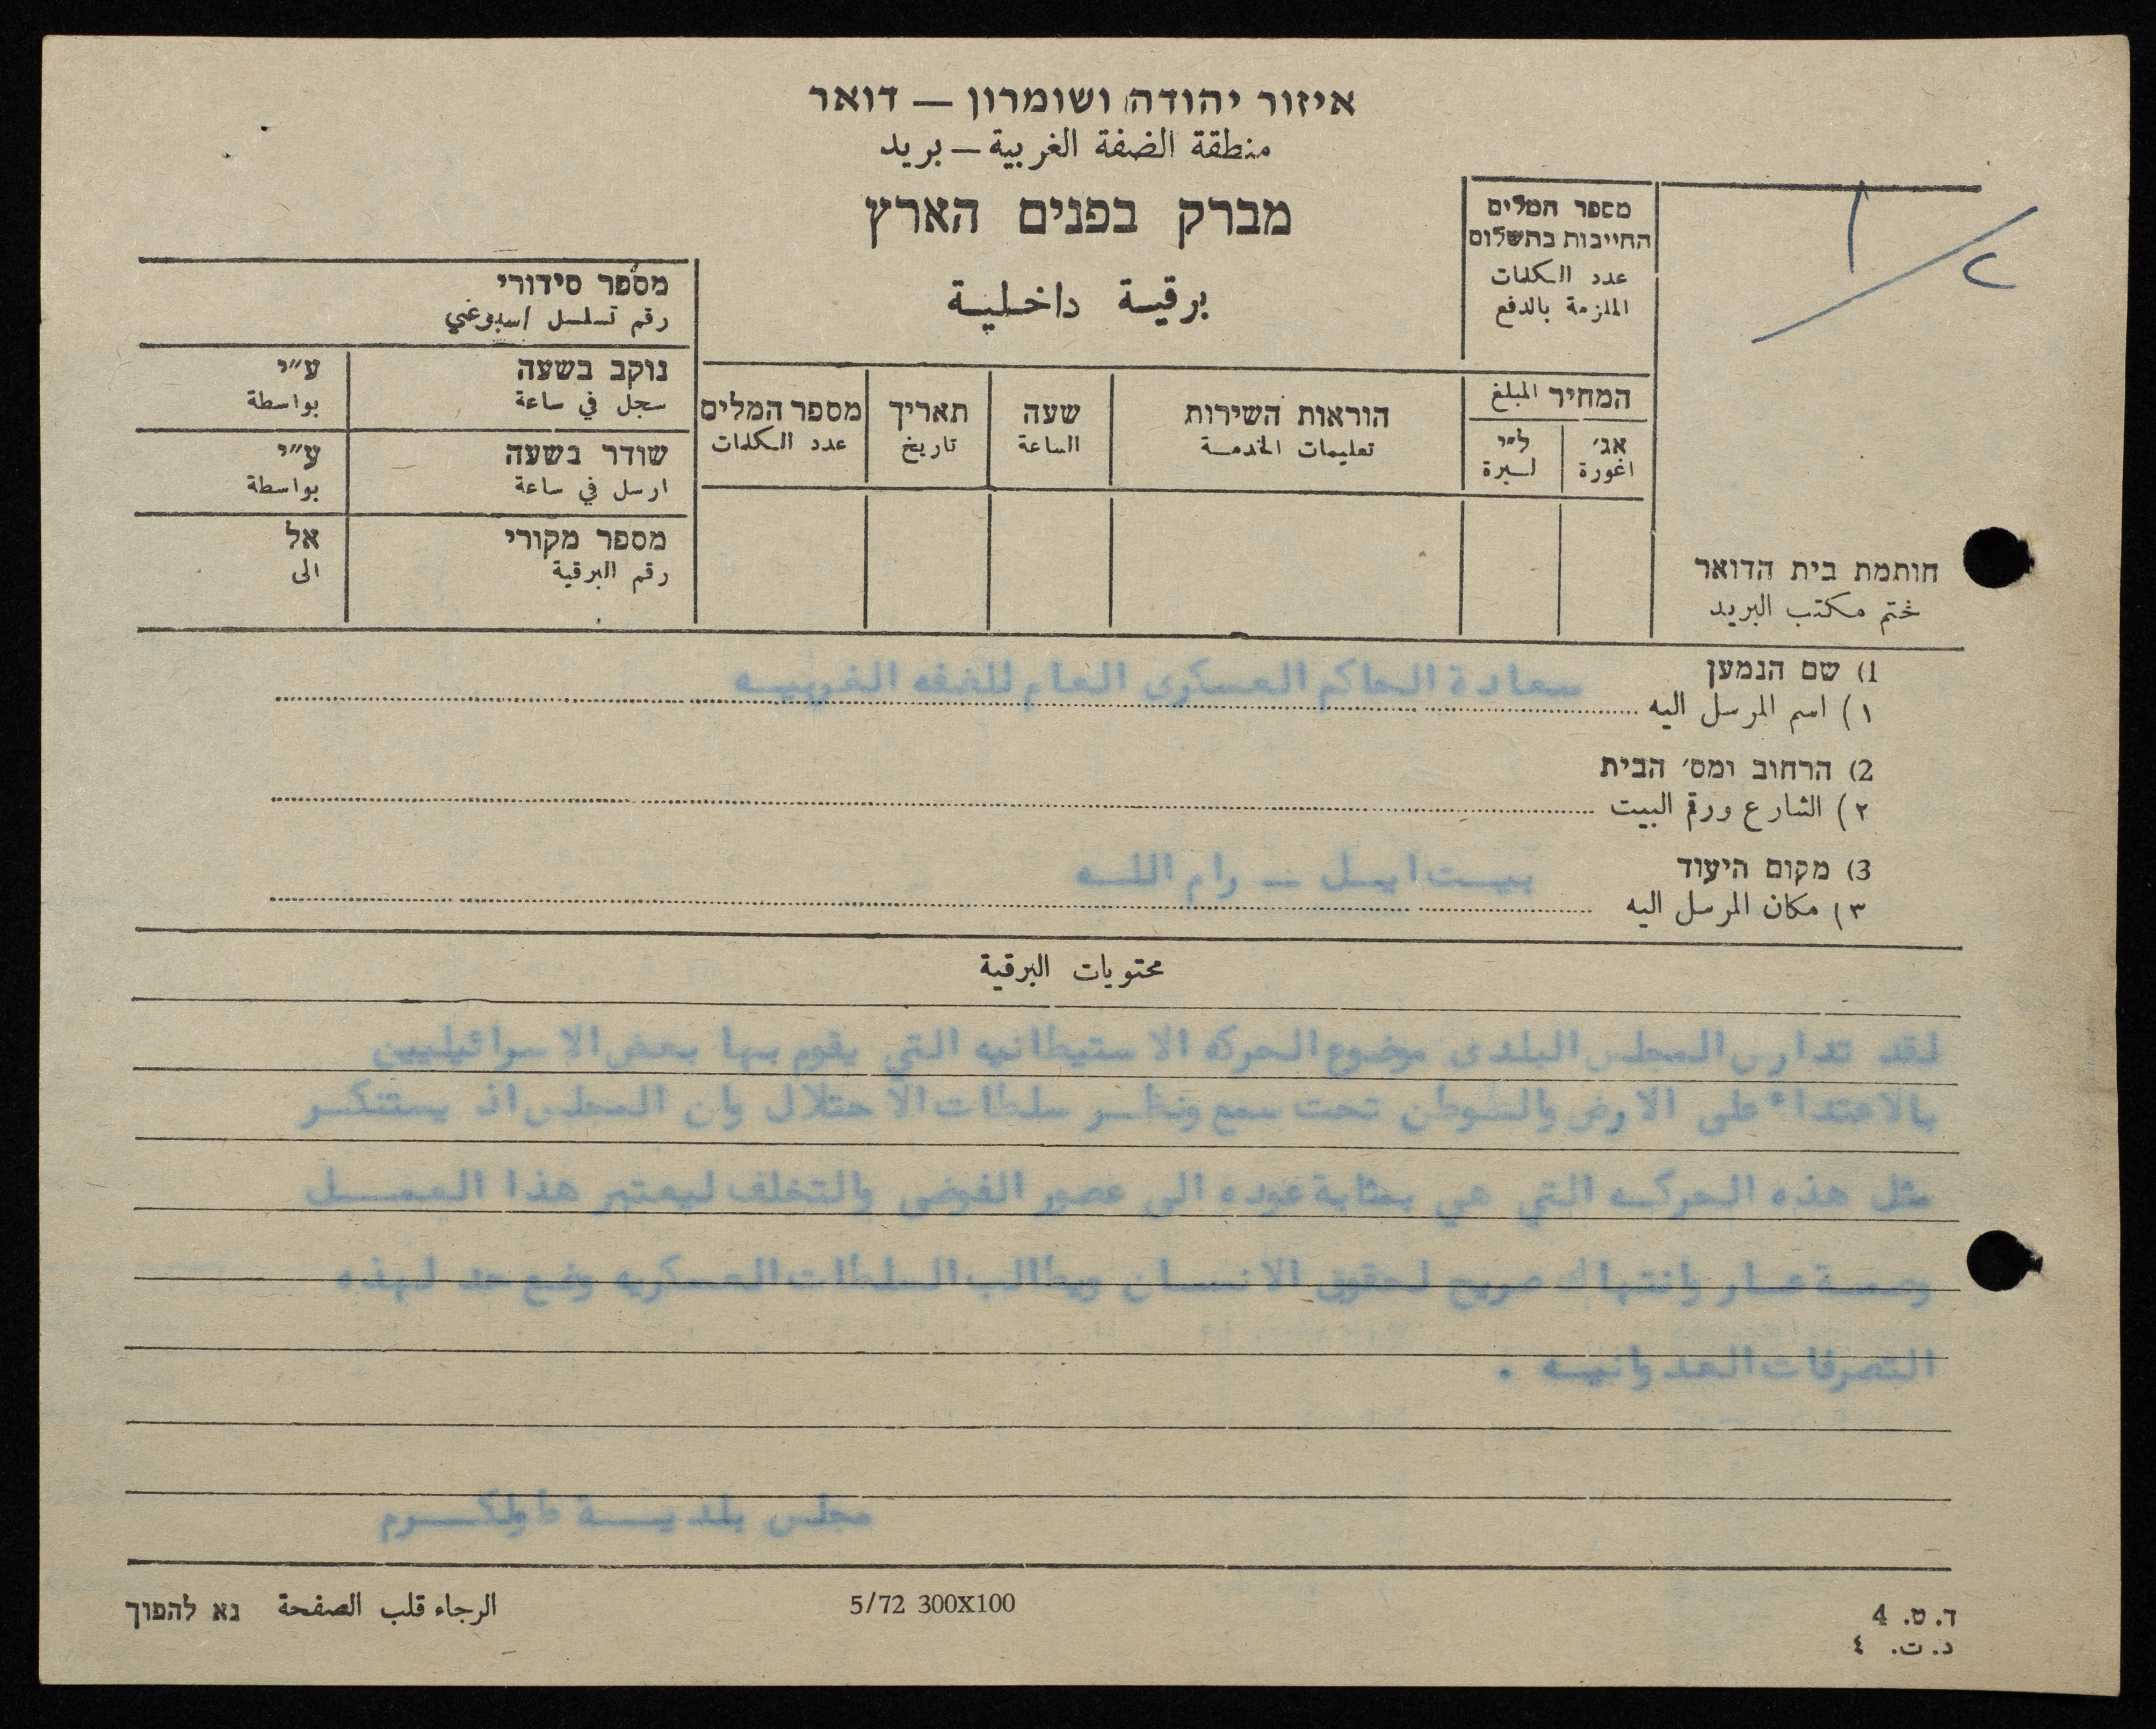 איזור יהודה ושומרון — דואר
منطقة الضفة الغربية — بريد
מברק בפנים הארץ
برقية داخلية
١/٢
מספר המלים
החייבות בתשלום
عدد الكلمات
الملزمة بالدفع
מספר סידורי
رقم تسلسل اسبوعي
נוקב בשעה ע״י
سجل في ساعة بواسطة
שודר בשעה ע״י
ارسل في ساعة بواسطة
מספר מקורי אל
رقم البرقية الى
המחיר المبلغ
אג׳ ל״י
اغورة ليرة
הוראות השירות
تعليمات الخدمة
שעה
الساعة
תאריך
تاريخ
מספר המלים
عدد الكلمات
חותמת בית הדואר
ختم مكتب البريد
1) שם הנמען
١) اسم المرسل اليه سعادة الحاكم العسكرى العام للضفه الغربيه
2) הרחוב ומס׳ הבית
٢) الشارع ورقم البيت
3) מקום היעוד
٣) مكان المرسل اليه بيت ايل — رام الله
محتويات البرقية
لقد تدارس المجلس البلدى موضوع الحركه الاستيطانيه التي يقوم بها بعض الاسرائيليين
بالاعتداء على الارض والتوطن تحت سمع ونظر سلطات الاحتلال وان المجلس اذ يستنكر
مثل هذه الحركه التي هي بمثابة عوده الى عصور الفوضى والتخلف ليعتبر هذا العمل
وصمة عار وانتهاك صريح لحقوق الانسان ويطالب السلطات العسكريه وضع حد لهذه
التصرفات العدوانيه .
مجلس بلدية طولكرم
الرجاء قلب الصفحة נא להפוך
5/72 300X100
ד. ט. 4
د. ت. ٤